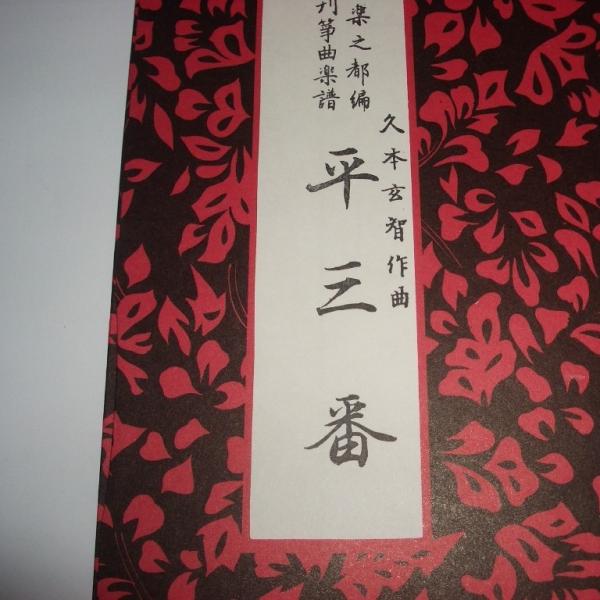 久本玄智作曲
楽之都編
刊箏曲楽譜
平三番